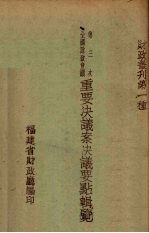 財政叢刊第一種
第三次
全國財政會議
重要決議案決議要點輯覽
福建省財政廳編印